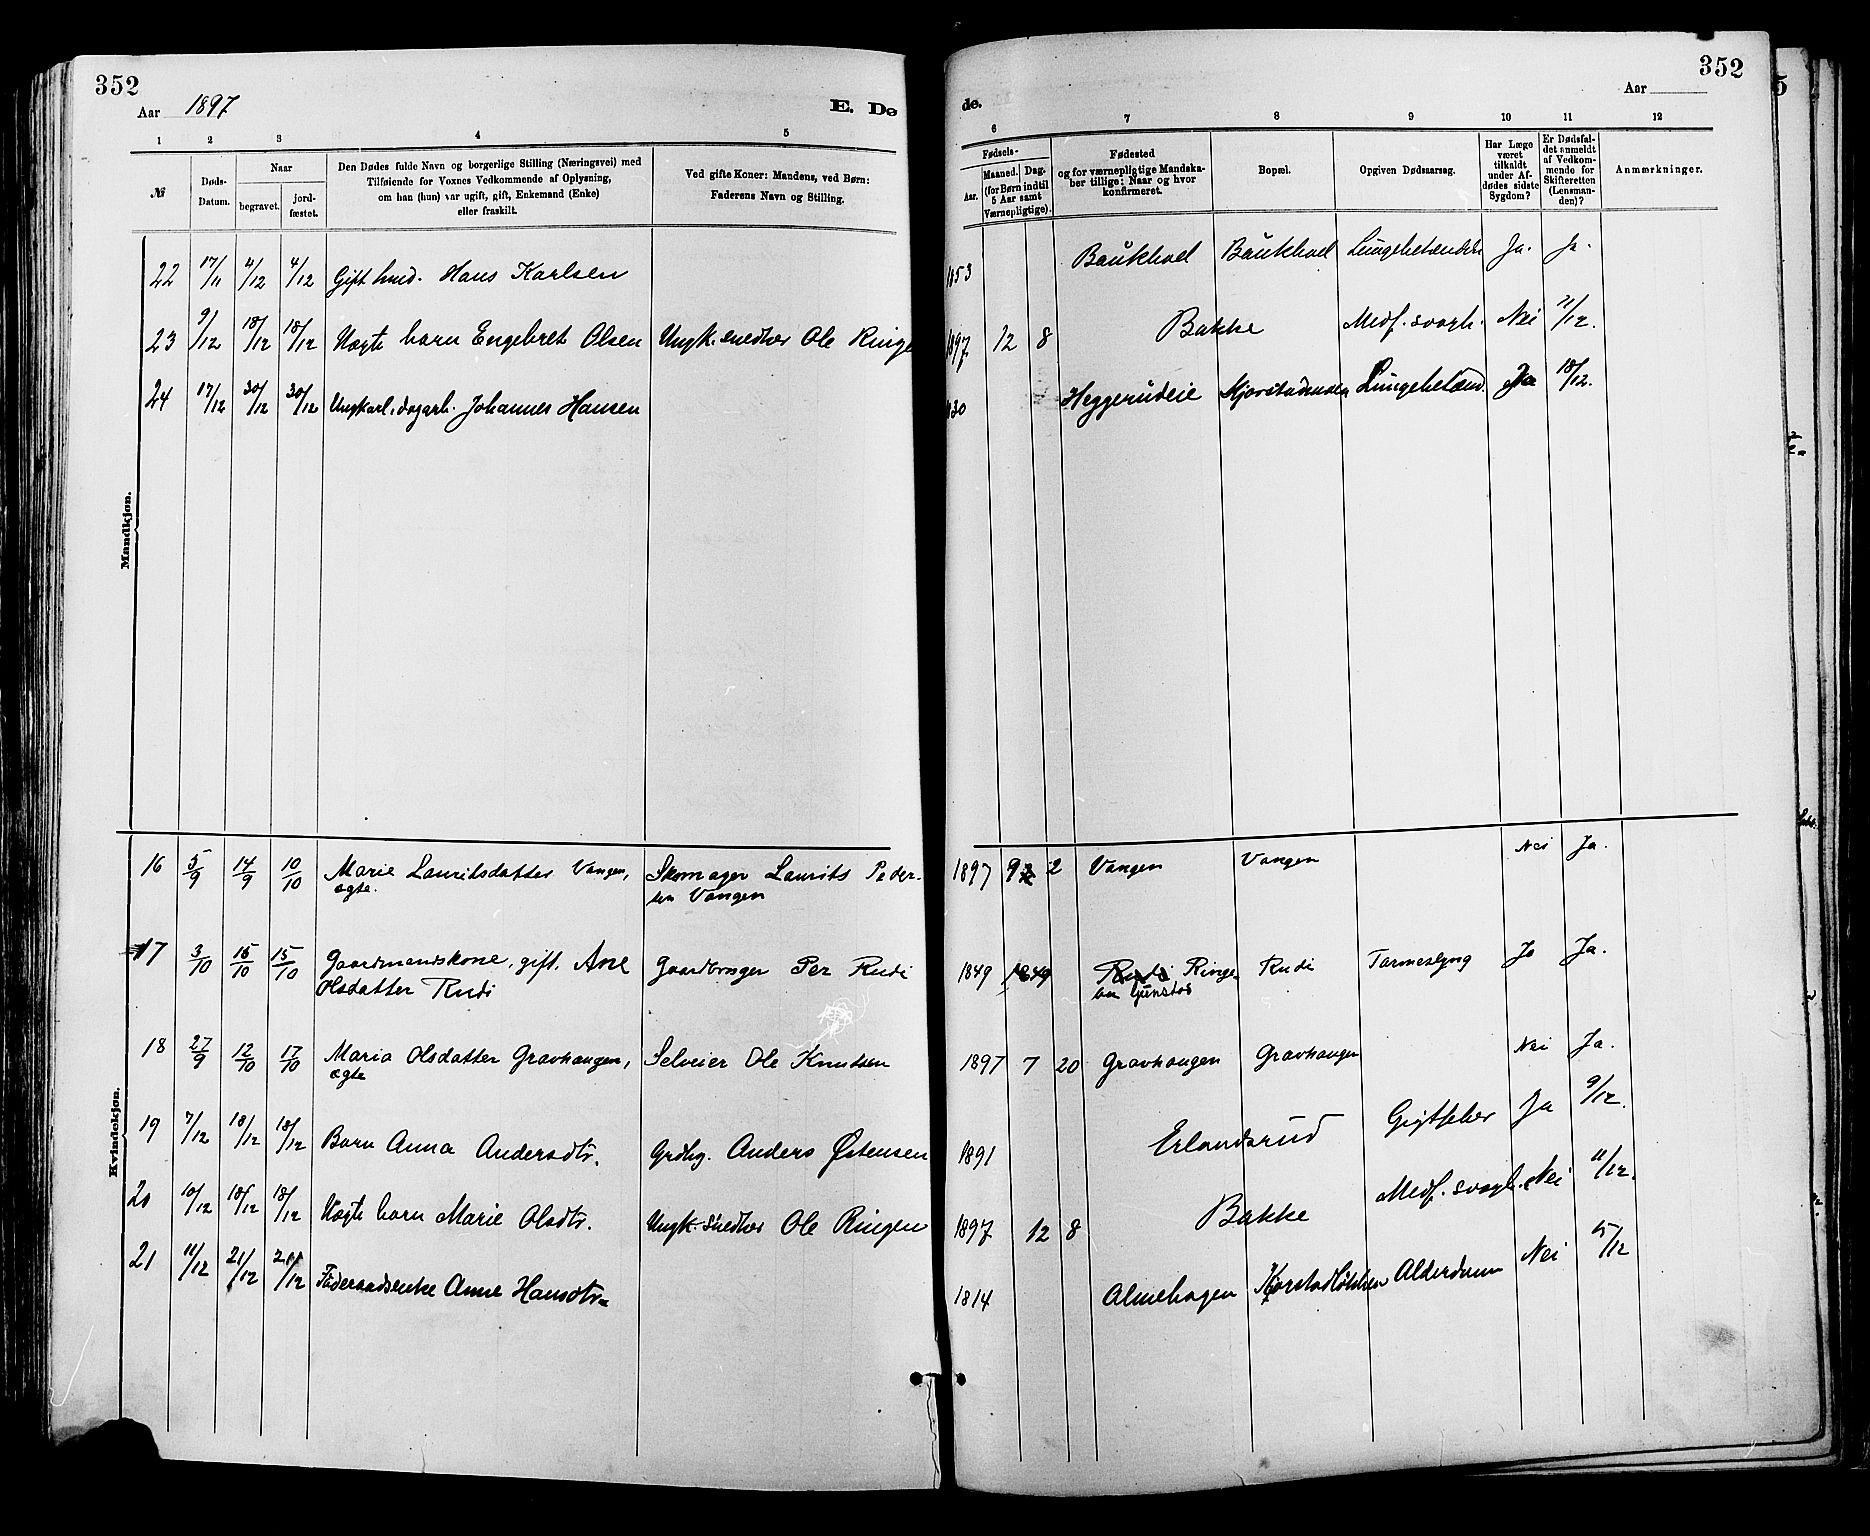 352
Aar 1897
E. De
1 2 3 4 5
№
Døds-
Datum.
Naar
begravet.
jord-
fæstet.
Den Dødes fulde Navn og borgerlige Stilling (Næringsvei) med
Tilføiende for Voxnes Vedkommende af Oplysning,
om han (hun) var ugift, gift, Enkemand (Enke)
eller fraskilt.
Ved gifte Koner: Mandens, ved Børn:
Faderens Navn og Stilling.
Mandkjøn.
22 17/11 4/12 4/12 Gift hmd. Hans Karlsen
23 9/12 18/12 18/12 Uægte barn Engebret Olsen Ungk. snedker Ole Ringe
24 17/12 30/12 30/12 Ungkarl, dagarb. Johannes Hansen
Kvindekjøn.
16 5/9 14/9 10/10 Marie Lauritsdatter Vangen, Skomager Laurits Peder-
ægte. sen Vangen
17 3/10 15/10 15/10 Gaardmandskone, gift. Ane Gaardbruger Per Rudi
Olsdatter Rudi
18 27/9 12/10 17/10 Maria Olsdatter Gravhaugen, Selveier Ole Knutsen
ægte
19 7/12 18/12 18/12 Barn Anna Andersdtr. Grdbg. Anders Østensen
20 10/12 18/12 18/12 Uægte barn Marie Olsdtr. Ungk. snedker Ole Ringen
21 11/12 21/12 21/12 Føderaadsenke Anne Hansdtr.
352
Aar
de.
6 7 8 9 10 11 12
Fødsels-
Aar.
Maaned. Dag.
(for Børn indtil
5 Aar samt
Værnepligtige).
Fødested
og for værnepligtige Mandska-
ber tillige: Naar og hvor
konfirmeret.
Bopæl.
Opgiven Dødsaarsag.
Har Læge
været
tilkaldt
under Af-
dødes sidste
Sygdom?
Er Dødsfal-
det anmeldt
af Vedkom-
mende for
Skifteretten
(Lensman-
den)?
Anmærkninger.
1853 Baukhol Baukhol Lungebetændelse Ja. Ja.
1897 12 8 Bakke Medf. svagh. Nei 11/12.
1830 Heggerudeie Kjorstadmoen Lungebetænd. Ja 18/12.
1897 9 2 Vangen Vangen Nei Ja.
1849 1849 Rudi Ringe- Rudi Tarmeslyng Ja Ja.
1897 7 20 Gravhaugen Gravhaugen Nei Ja.
1891 Erlandsrud Gigtfeber Ja 9/12.
1897 12 8 Bakke Medf. svagh. Nei 11/12.
1814 Almehagen Kjorstadløkken Alderdom Nei 15/12